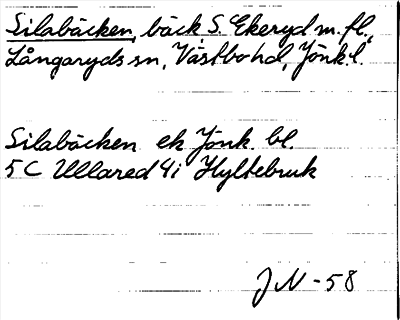 Silabäcken, bäck S. Ekeryd m. fl.,
Långaryds sn, Västbo hd, Jönk. l.
Silabäcken ek Jönk. bl.
5 C Ullared 4i Hyltebruk
JN -58